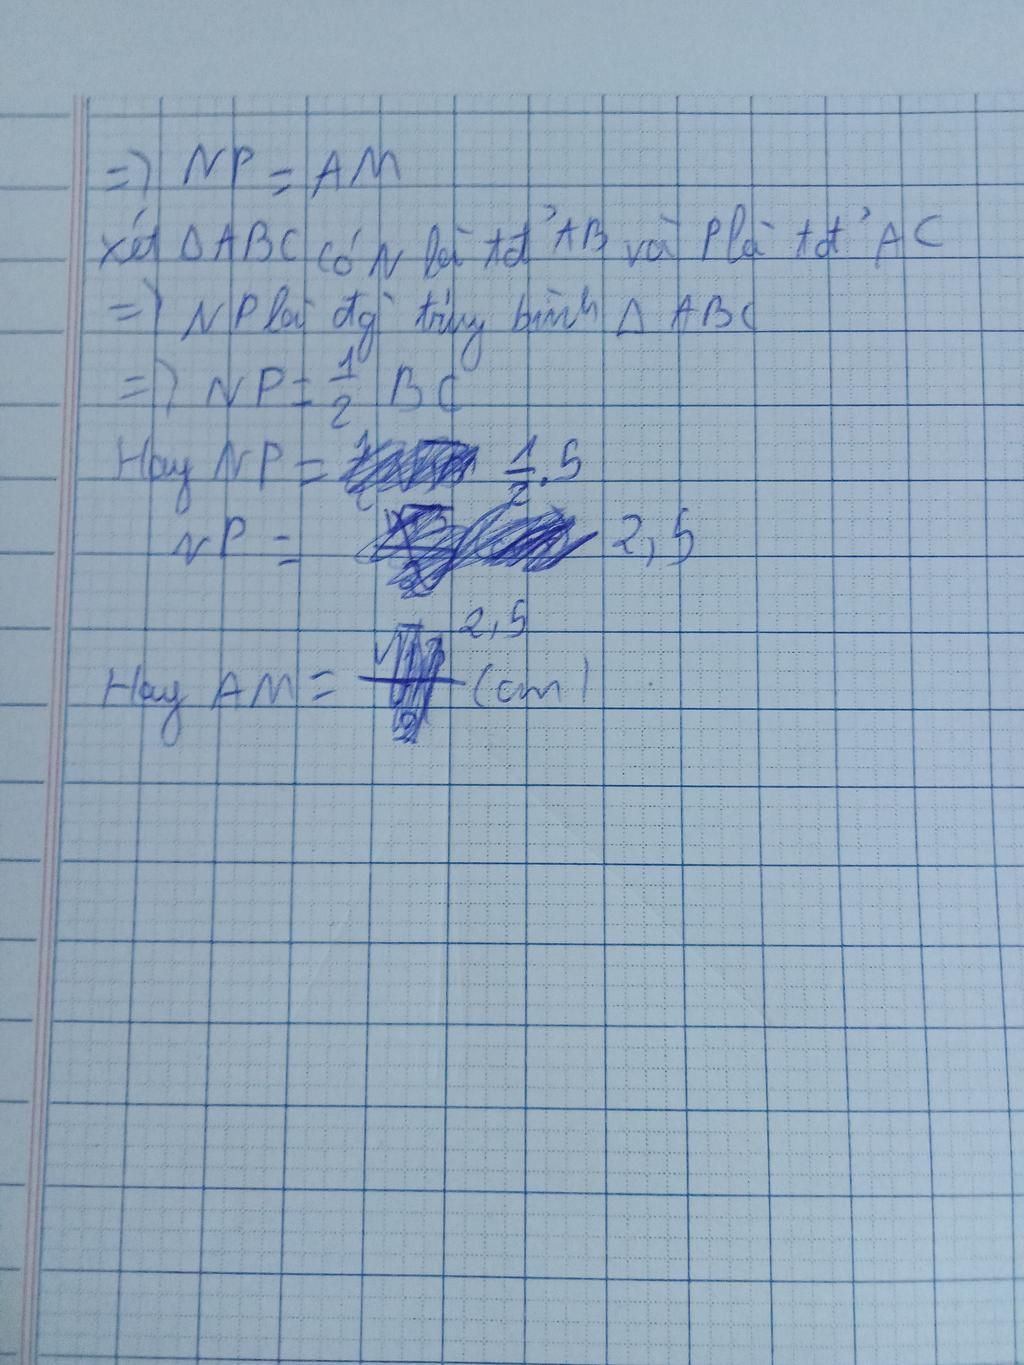 => NP = AM
xét ΔABC có N là tđ' AB và P là tđ' AC
=> NP là đg trung bình Δ ABC
=> NP = 1/2 BC
Hay NP = 1/2 . 5
NP = 2,5
Hay AM = 2,5 (cm)